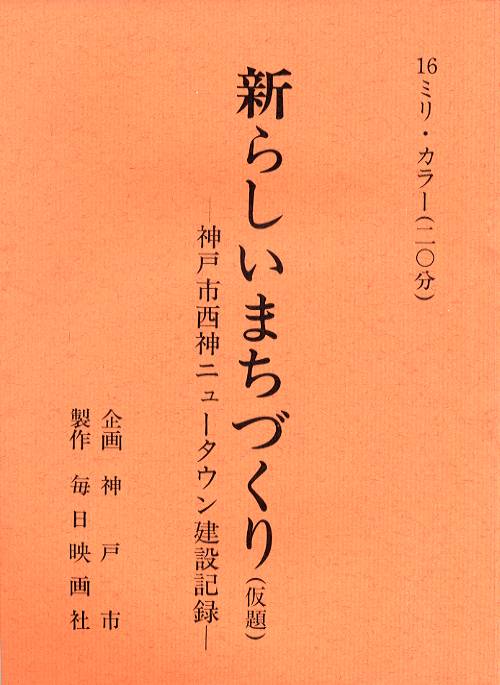 16ミリ・カラー(二〇分)
新らしいまちづくり(仮題)
―神戸市西神ニュータウン建設記録―
企画 神戸市
製作 毎日映画社